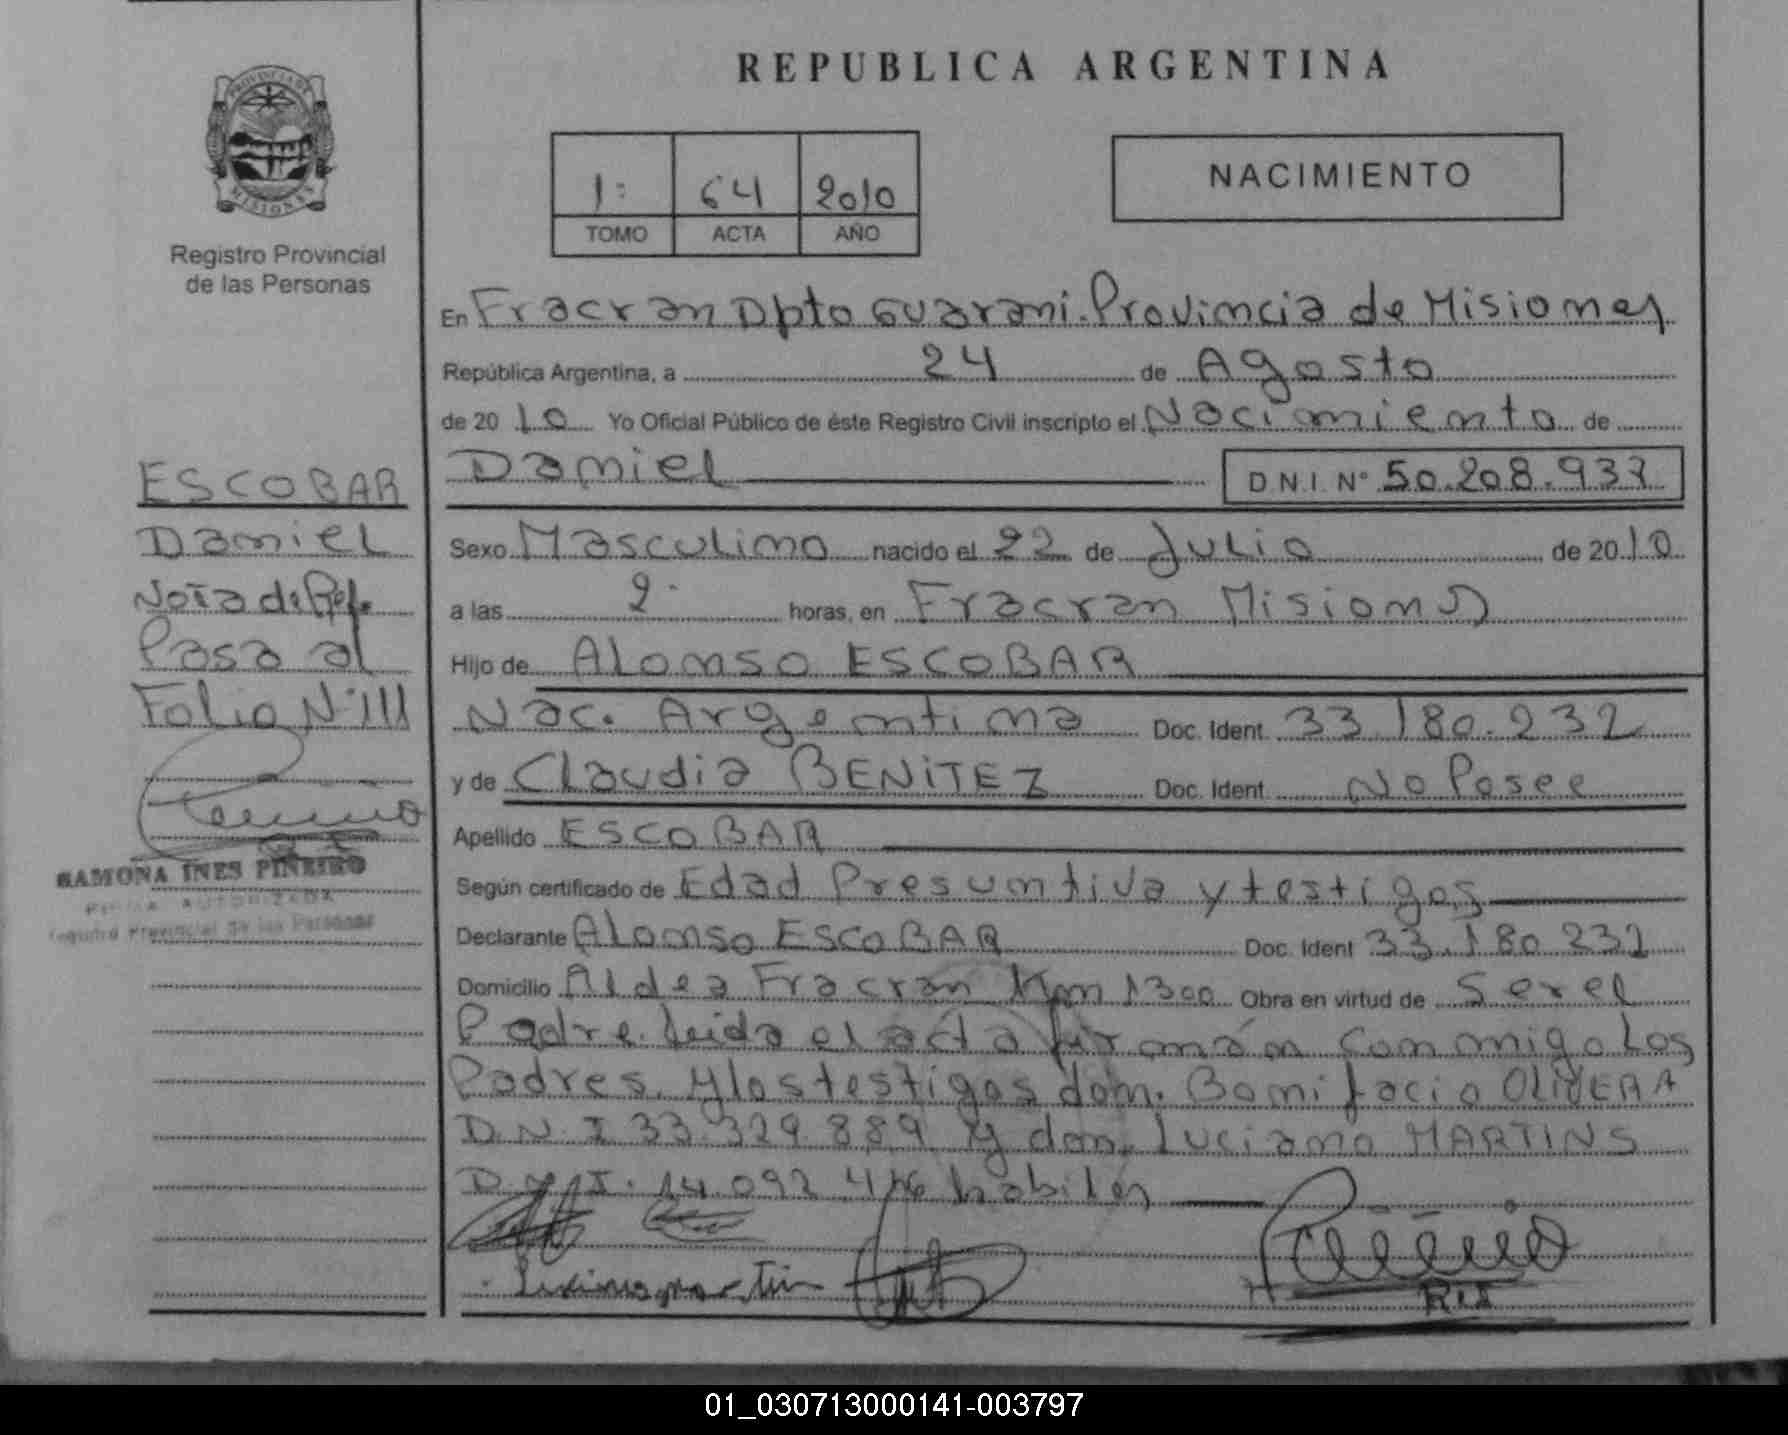 REPUBLICA ARGENTINA
PROVINCIA DE
MISIONES
Registro Provincial
de las Personas
1: 64 2010
TOMO ACTA AÑO
NACIMIENTO
En Fracran Dpto Guarani. Provincia de Misiones
República Argentina, a 24 de Agosto
de 2010 Yo Oficial Público de éste Registro Civil inscripto el Nacimiento de
Daniel D.N.I. Nº 50.208.937
Sexo Masculino nacido el 22 de Julio de 2010
a las 2. horas, en Fracran Misiones
Hijo de Alonso ESCOBAR
Nac. Argentina Doc. Ident. 33.180.232
y de Claudia BENITEZ Doc. Ident. No Posee
Apellido ESCOBAR
Según certificado de Edad Presuntiva y testigos
Declarante Alonso ESCOBAR Doc. Ident 33.180.232
Domicilio Aldea Fracran Km 1300 Obra en virtud de Ser el
Padre. leida el acta firmán conmigo Los
Padres. y los testigos don. Bonifacio OLIVERA
D.N.I 33.329.889 y don. Luciano MARTINS
D.N.I. 14.092 416 habiles
R.I.P
ESCOBAR
Daniel
Nota de Ref.
Pasa al
Folio Nº 111
RAMONA INES PIÑEIRO
FIRMA AUTORIZADA
Registro Provincial de las Personas
01_030713000141-003797